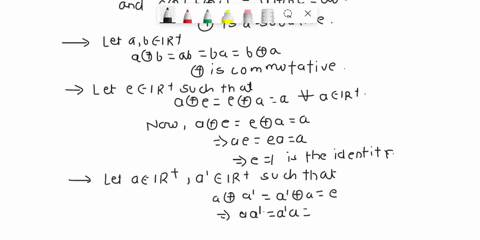 and
⊕ is a
→ Let a, b ∈ IR⁺
a ⊕ b = ab = ba = b ⊕ a
⊕ is commutative.
→ Let e ∈ IR⁺ such that
a ⊕ e = e ⊕ a = a ∀ a ∈ IR⁺.
Now, a ⊕ e = e ⊕ a = a
⇒ ae = ea = a
⇒ e = 1 is the identity.
→ Let a ∈ IR⁺, a' ∈ IR⁺ such that
a ⊕ a' = a' ⊕ a = e
⇒ aa' = a'a =